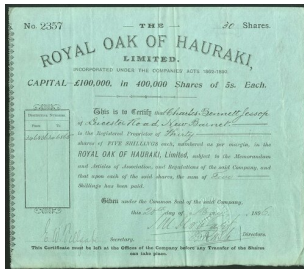 No. 2357
30 Shares.
THE
ROYAL OAK OF HAURAKI,
LIMITED.
INCORPORATED UNDER THE COMPANIES' ACTS
CAPITAL £100,000, in 400,000 Shares of 5s. Each.
This is to Certify that Charles Bennett Jessop
of Leicester Road New Barnet
is the Registered Proprietor of Thirty
shares of FIVE SHILLINGS each, numbered as per margin, in the
ROYAL OAK OF HAURAKI, Limited, subject to the Memorandum
and Articles of Association, and Regulations of the said Company, and
that upon each of the said shares, the sum of Five
Shillings has been paid.
Given under the Common Seal of the said Company,
this day of
Secretary.
Directors
This Certificate must be left at the Offices of the Company before any Transfer of the Shares
can take place.